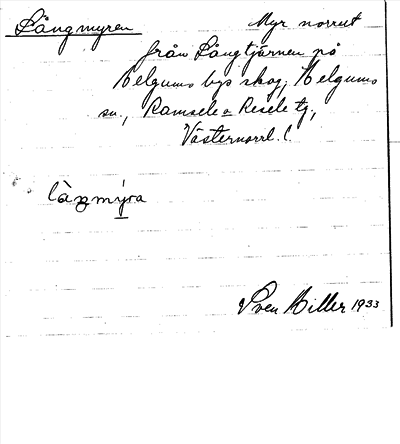 Långmyren Myr norrut
från Långtjärnen på
Helgums bys skog, Helgums
sn., Ramsele o Resele tg.,
Västernorrl. l.
làŋmýra
Sven Hiller 1933